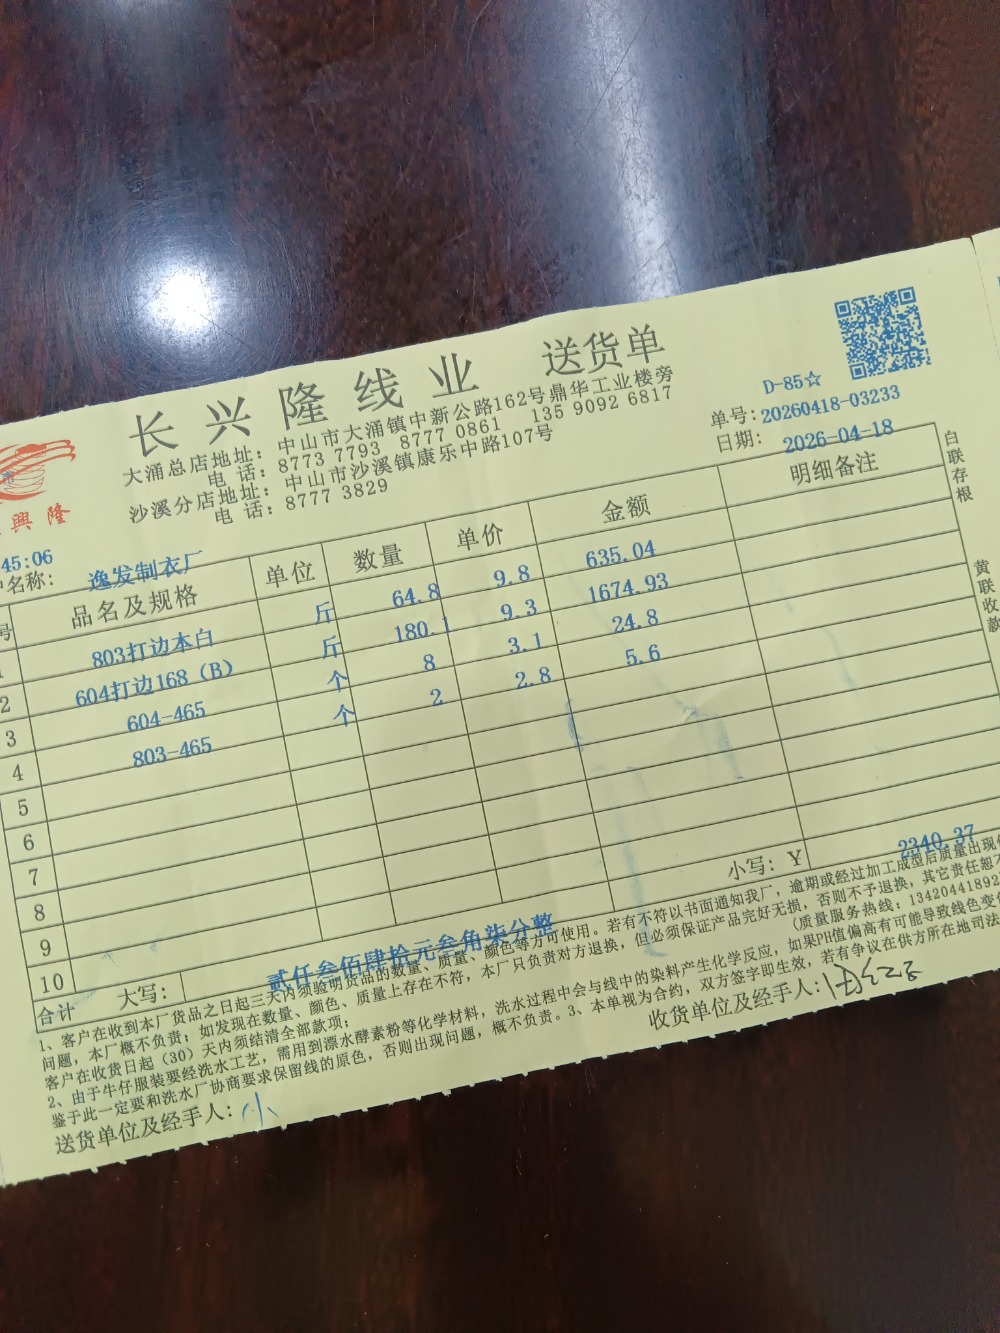 长兴隆线业 送货单
D-85☆
大涌总店地址：中山市大涌镇中新公路162号鼎华工业楼旁
电 话：8773 7793 8777 0861 135 9092 6817
沙溪分店地址：中山市沙溪镇康乐中路107号
电 话：8777 3829
单号：20260418-03233
日期：2026-04-18
興隆
45:06
名称：逸发制衣厂
号 品名及规格 单位 数量 单价 金额 明细备注
803打边本白 斤 64.8 9.8 635.04
2 604打边168（B） 斤 180.1 9.3 1674.93
3 604-465 个 8 3.1 24.8
4 803-465 个 2 2.8 5.6
5
6
7
8
9
10
合计 大写：贰仟叁佰肆拾元叁角柒分整 小写：¥ 2340.37
1、客户在收到本厂货品之日起三天内须验明货品的数量、质量、颜色等方可使用。若有不符以书面通知我厂，逾期或经过加工成型后质量出现
问题，本厂概不负责；如发现在数量、颜色、质量上存在不符，本厂只负责对方退换，但必须保证产品完好无损，否则不予退换，其它责任恕不
客户在收货日起（30）天内须结清全部款项；
（质量服务热线：1342044189
2、由于牛仔服装要经洗水工艺，需用到漂水酵素粉等化学材料，洗水过程中会与线中的染料产生化学反应，如果PH值偏高有可能导致线色变
鉴于此一定要和洗水厂协商要求保留线的原色，否则出现问题，概不负责。3、本单视为合约，双方签字即生效，若有争议在供方所在地司法
送货单位及经手人：小
收货单位及经手人：
白联存根
黄联收款